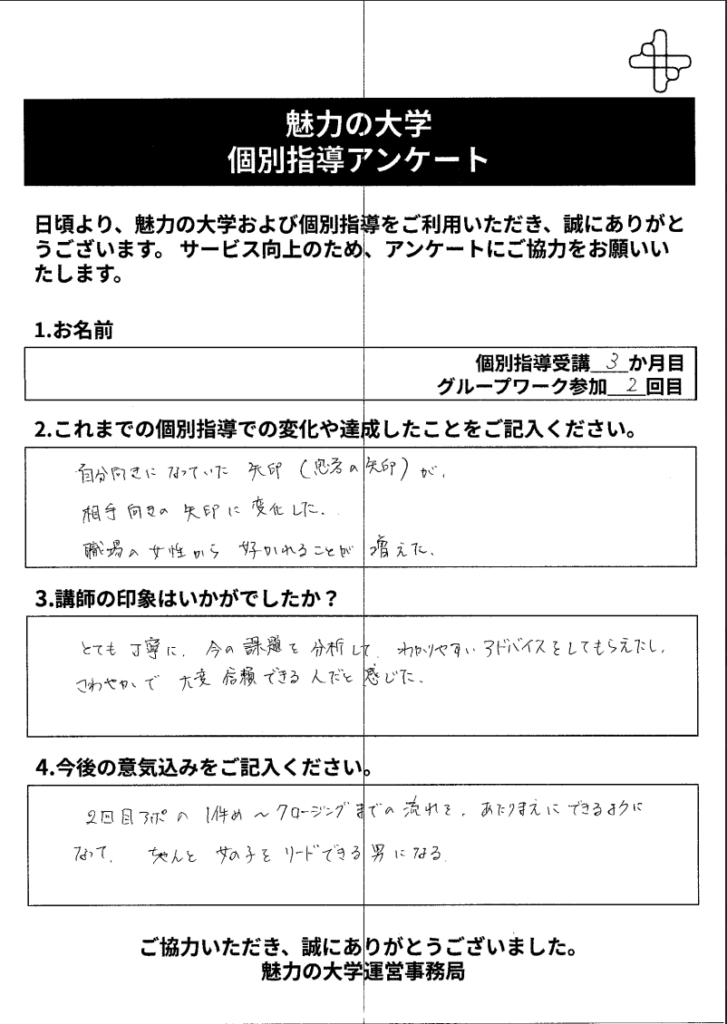 魅力の大学
個別指導アンケート
日頃より、魅力の大学および個別指導をご利用いただき、誠にありがと
うございます。 サービス向上のため、アンケートにご協力をお願いい
たします。
1.お名前
個別指導受講 3 か月目
グループワーク参加 2 回目
2.これまでの個別指導での変化や達成したことをご記入ください。
自分向きになっていた 矢印 (思考の矢印) が、
相手向きの矢印に変化した。
職場の女性から 好かれることが 増えた。
3.講師の印象はいかがでしたか？
とても丁寧に、今の課題を分析して、わかりやすいアドバイスをしてもらえたし、
さわやかで 大変 信頼できる人だと感じた。
4.今後の意気込みをご記入ください。
2回目アポの 1件め〜クロージングまでの流れを、あたりまえにできるように
なって、 ちゃんと 女の子をリードできる男になる。
ご協力いただき、誠にありがとうございました。
魅力の大学運営事務局